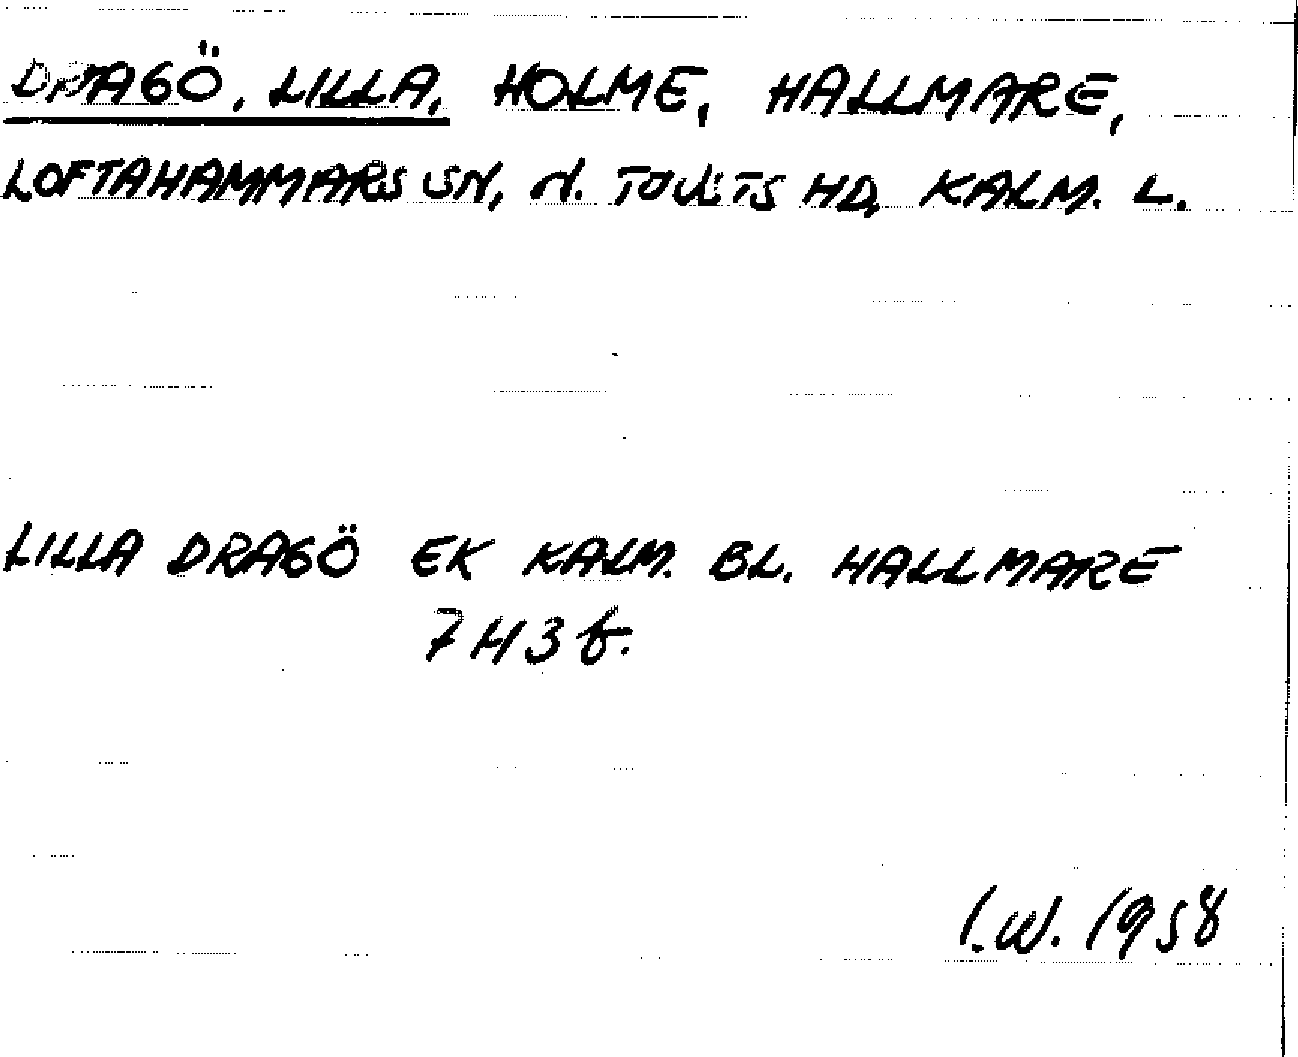 DRAGÖ, LILLA, HOLME, HALLMARE,
LOFTAHAMMARS SN, N. TJUSTS HD, KALM. L.
LILLA DRAGÖ EK KALM. BL. HALLMARE
7H3f.
I.W. 1958